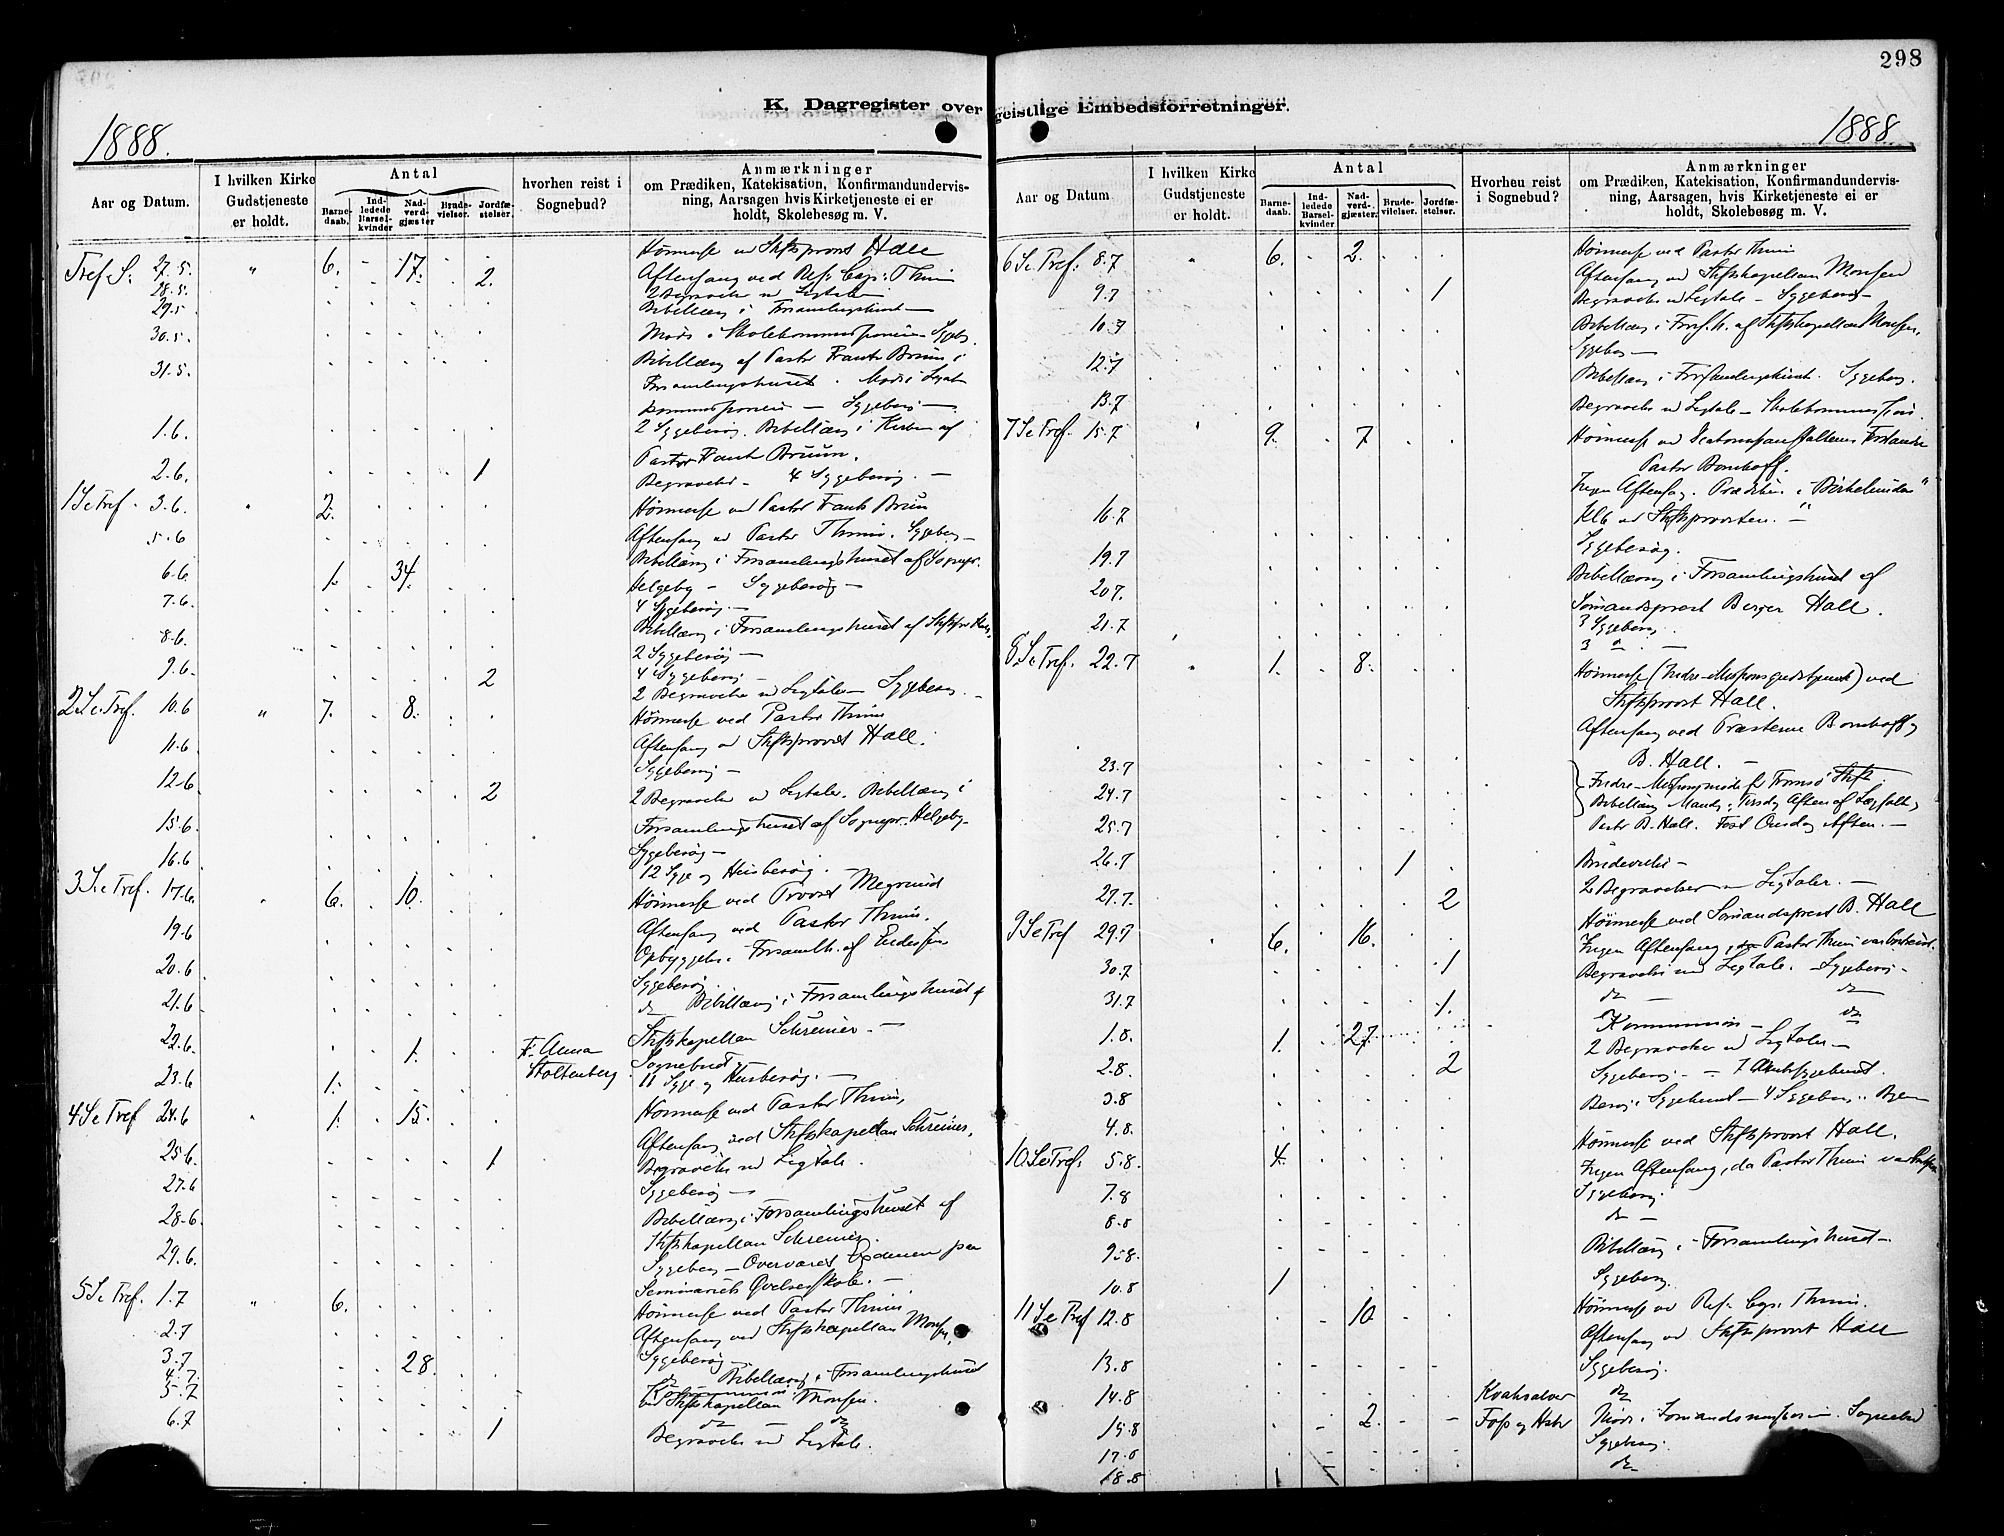 298
K. Dagregister over geistlige Embedsforretninger.
1888.
1888.
Aar og Datum.
I hvilken Kirke Gudstjeneste er holdt.
Antal
Barnedaab.
Indledede Barselkvinder
Nadverdgjæster
Brudevielser.
Jordfæstelser.
hvorhen reist i Sognebud?
Anmærkninger
om Prædiken, Katekisation, Konfirmandundervisning, Aarsagen hvis Kirketjeneste ei er holdt, Skolebesøg m. V.
Tref S: 27.5. " 6. - 17. Høimesse ved Stiftsprovst Hall
28.5. 2. Aftensang ved Res: Cap: Thiis
2 Begravelser ved Ligtale
29.5 Bibellæsn. i Forsamlingshuset —
30.5. Møde i Skolekommissionen
31.5. Bibellæsn. af Pastor Frants Bruun i
Forsamlingshuset. Møde i
kommissionen — Sygebesøg —
1.6. 2 Sygebesøg. Bibellæsn. i Kirken af
Pastor Frants Bruun.
2.6. 1 Begravelse. 4 Sygebesøg. —
1 S. e Tref. 3.6. 2. Høimesse ved Pastor Frants Bruun
Aftensang ved Pastor Thiis. Sygebesøg —
5.6 Bibellæsn. i Forsamlingshuset af Sognepr.
6.6. 1. 34. Helgeby — Sygebesøg —
7.6. 4 Sygebesøg —
Bibellæsn. i Forsamlingshuset af Stiftspr. Hall,
8.6. 2 Sygebesøg —
9.6. 2 4 Sygebesøg —
2 Begravelser ved Ligtaler — Sygebesøg. —
2 S. e. Tref. 10.6 " 7. 8. Høimesse ved Pastor Thiis
Aftensang ved Stiftsprovst Hall.
11.6 Sygebesøg —
12.6 2 2 Begravelser ved Ligtaler. Bibellæsn. i
Forsamlingshuset af Sognepr. Helgeby —
15.6. Sygebesøg —
16.6 12 Syge og Husbesøg.
3 S. e Tref. 17.6. 6. 10. Høimesse ved Provst
Aftensang ved Pastor Thiis.
19.6 Opbyggelse i Forsamlh. af
20.6 Sygebesøg.
21.6 do — Bibellæsn. i Forsamlingshuset af
Stiftskapellan Schreiner. —
22.6. 1. Fr. Anna Stoltenberg Sognebud
23.6 1. 11 Syge og Husbesøg. —
4 S e Tref 24.6 1. 15. Høimesse ved Pastor Thiis,
Aftensang ved Stiftskapellan Schreiner.
25.6. 1 Begravelse ved Ligtale.
27.6 Sygebesøg —
28.6. Bibellæsn. i Forsamlingshuset af
Stiftskapellan Schreiner.
29.6 Sygebesøg — Overværet Examen paa
Seminariets Øvelsesskole. —
5 S. e Tref. 1.7 " 6. Høimesse ved Pastor Thiis
Aftensang ved Stiftskapellan Monsen,
2.7 Sygebesøg —
3.7 28. do Bibellæsn. i Forsamlingshuset
4.7. ved Stiftskapellan Monsen.
5.7 do — do
6.7 1 Begravelse ved Ligtale.
Aar og Datum
I hvilken Kirke Gudstjeneste er holdt.
Antal
Barnedaab.
Indledede Barselkvinder
Nadverdgjæster.
Brudevielser.
Jordfæstelser.
Hvorheu reist i Sognebud?
Anmærkninger
om Prædiken, Katekisation, Konfirmandundervisning, Aarsagen, hvis Kirketjeneste ei er holdt, Skolebesøg m. V.
6 S. e Tref. 8.7 6. 2. Høimesse ved Pastor Thiis
Aftensang ved Stiftskapellan Monsen
9.7 1 Begravelse ved Ligtale — Sygebesøg —
10.7 Bibellæsn. i Fors. h. af Stiftskapellan Monsen,
Sygebesøg —
12.7 Bibellæsn. i Forsamlingshuset. Sygebesøg.
13.7 Begravelse ved Ligtale — Skolekommission.
7 S. e Tref. 15.7 9. 7 Høimesse ved
Pastor Bomhoff.
Ingen Aftensang. Prædiken i "Birkelunden"
16.7 Kl 6 ved Stiftsprovsten. —
Sygebesøg.
19.7 Bibellæsn. i Forsamlingshuset af
20.7. Sømandsprest Berger Hall.
21.7 3 Sygebesøg
3 " —
8. S. e Tref. 22.7 " 1. 8. Høimesse (Indre-Missionsgudstjeneste) ved
Stiftsprovst Hall.
Aftensang ved Præsterne Bomhoff og
B. Hall. —
23.7 Indre-Missionsmøde for Tromsø Stift.
24.7 Bibellæsn. Mandag, Tirsdag Aften af
25.7 Pastor B. Hall. Fest Onsdag Aften. —
26.7 1 Brudevielse —
27.7. 2 2 Begravelser ved Ligtaler. —
9 S e Tref 29.7 6. 16. Høimesse ved Sømandsprest B. Hall
Ingen Aftensang, da Pastor Thiis var bortreist.
30.7 1 Begravelse ved Ligtale. Sygebesøg —
31.7 1. do — do
1.8. 1. 27. Kommunion — do
2.8. 2 2 Begravelser ved Ligtaler —
Sygebesøg —
3.8 Besøg i Sygehuset — 4 Sygebesøg i Byen
4.8. Høimesse ved Stiftsprovst Hall.
10. S. e Tref. 5.8. 4. Ingen Aftensang, da Pastor Thiis var
7.8 Sygebesøg.
8.8 do —
9.8. Bibellæsn. i Forsamlingshuset —
10.8 1 Sygebesøg.
11 S e Tref 12.8 10 Høimesse ved Res. Cap. Thiis.
Aftensang ved Stiftsprovst Hall
13.8 Sygebesøg.
14.8 Kvaksalver do
15.8 2. Foss og Møde i Sømandsmissionen. Sognebud
17.8 Sygebesøg.
18.8 1 do